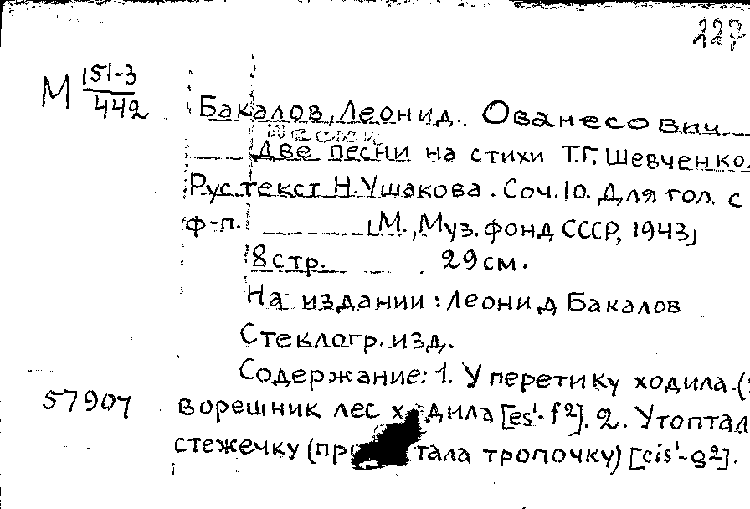 227
М 151-3
442
Бакалов, Леонид Ованесович
Две песни на стихи Т.Г. Шевченко.
Рус. текст Н. Ушакова. Соч. 10. Для гол. с
ф-п. [М., Муз. фонд СССР, 1943]
8 стр. 29 см.
На издании: Леонид Бакалов
Стеклогр. изд.
Содержание: 1. У перетику ходила. (
57907 ворешник лес ходила [es¹-f²]. 2. Утоптал
стежечку ( тала тропочку) [cis¹-g²].